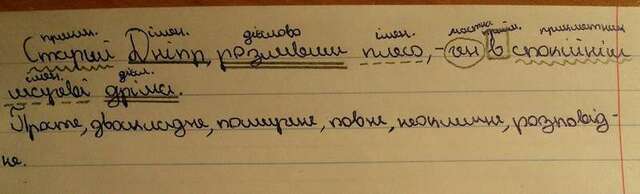 прикм. імен. дієслово імен. частка прийм. прикметник
Старий Дніпр, розливши плесо, - ген в спокійнім
імен. дієсл.
місяцеві дрімає.
Просте, двоскладне, поширене, повне, неоклична, розповід-
не.